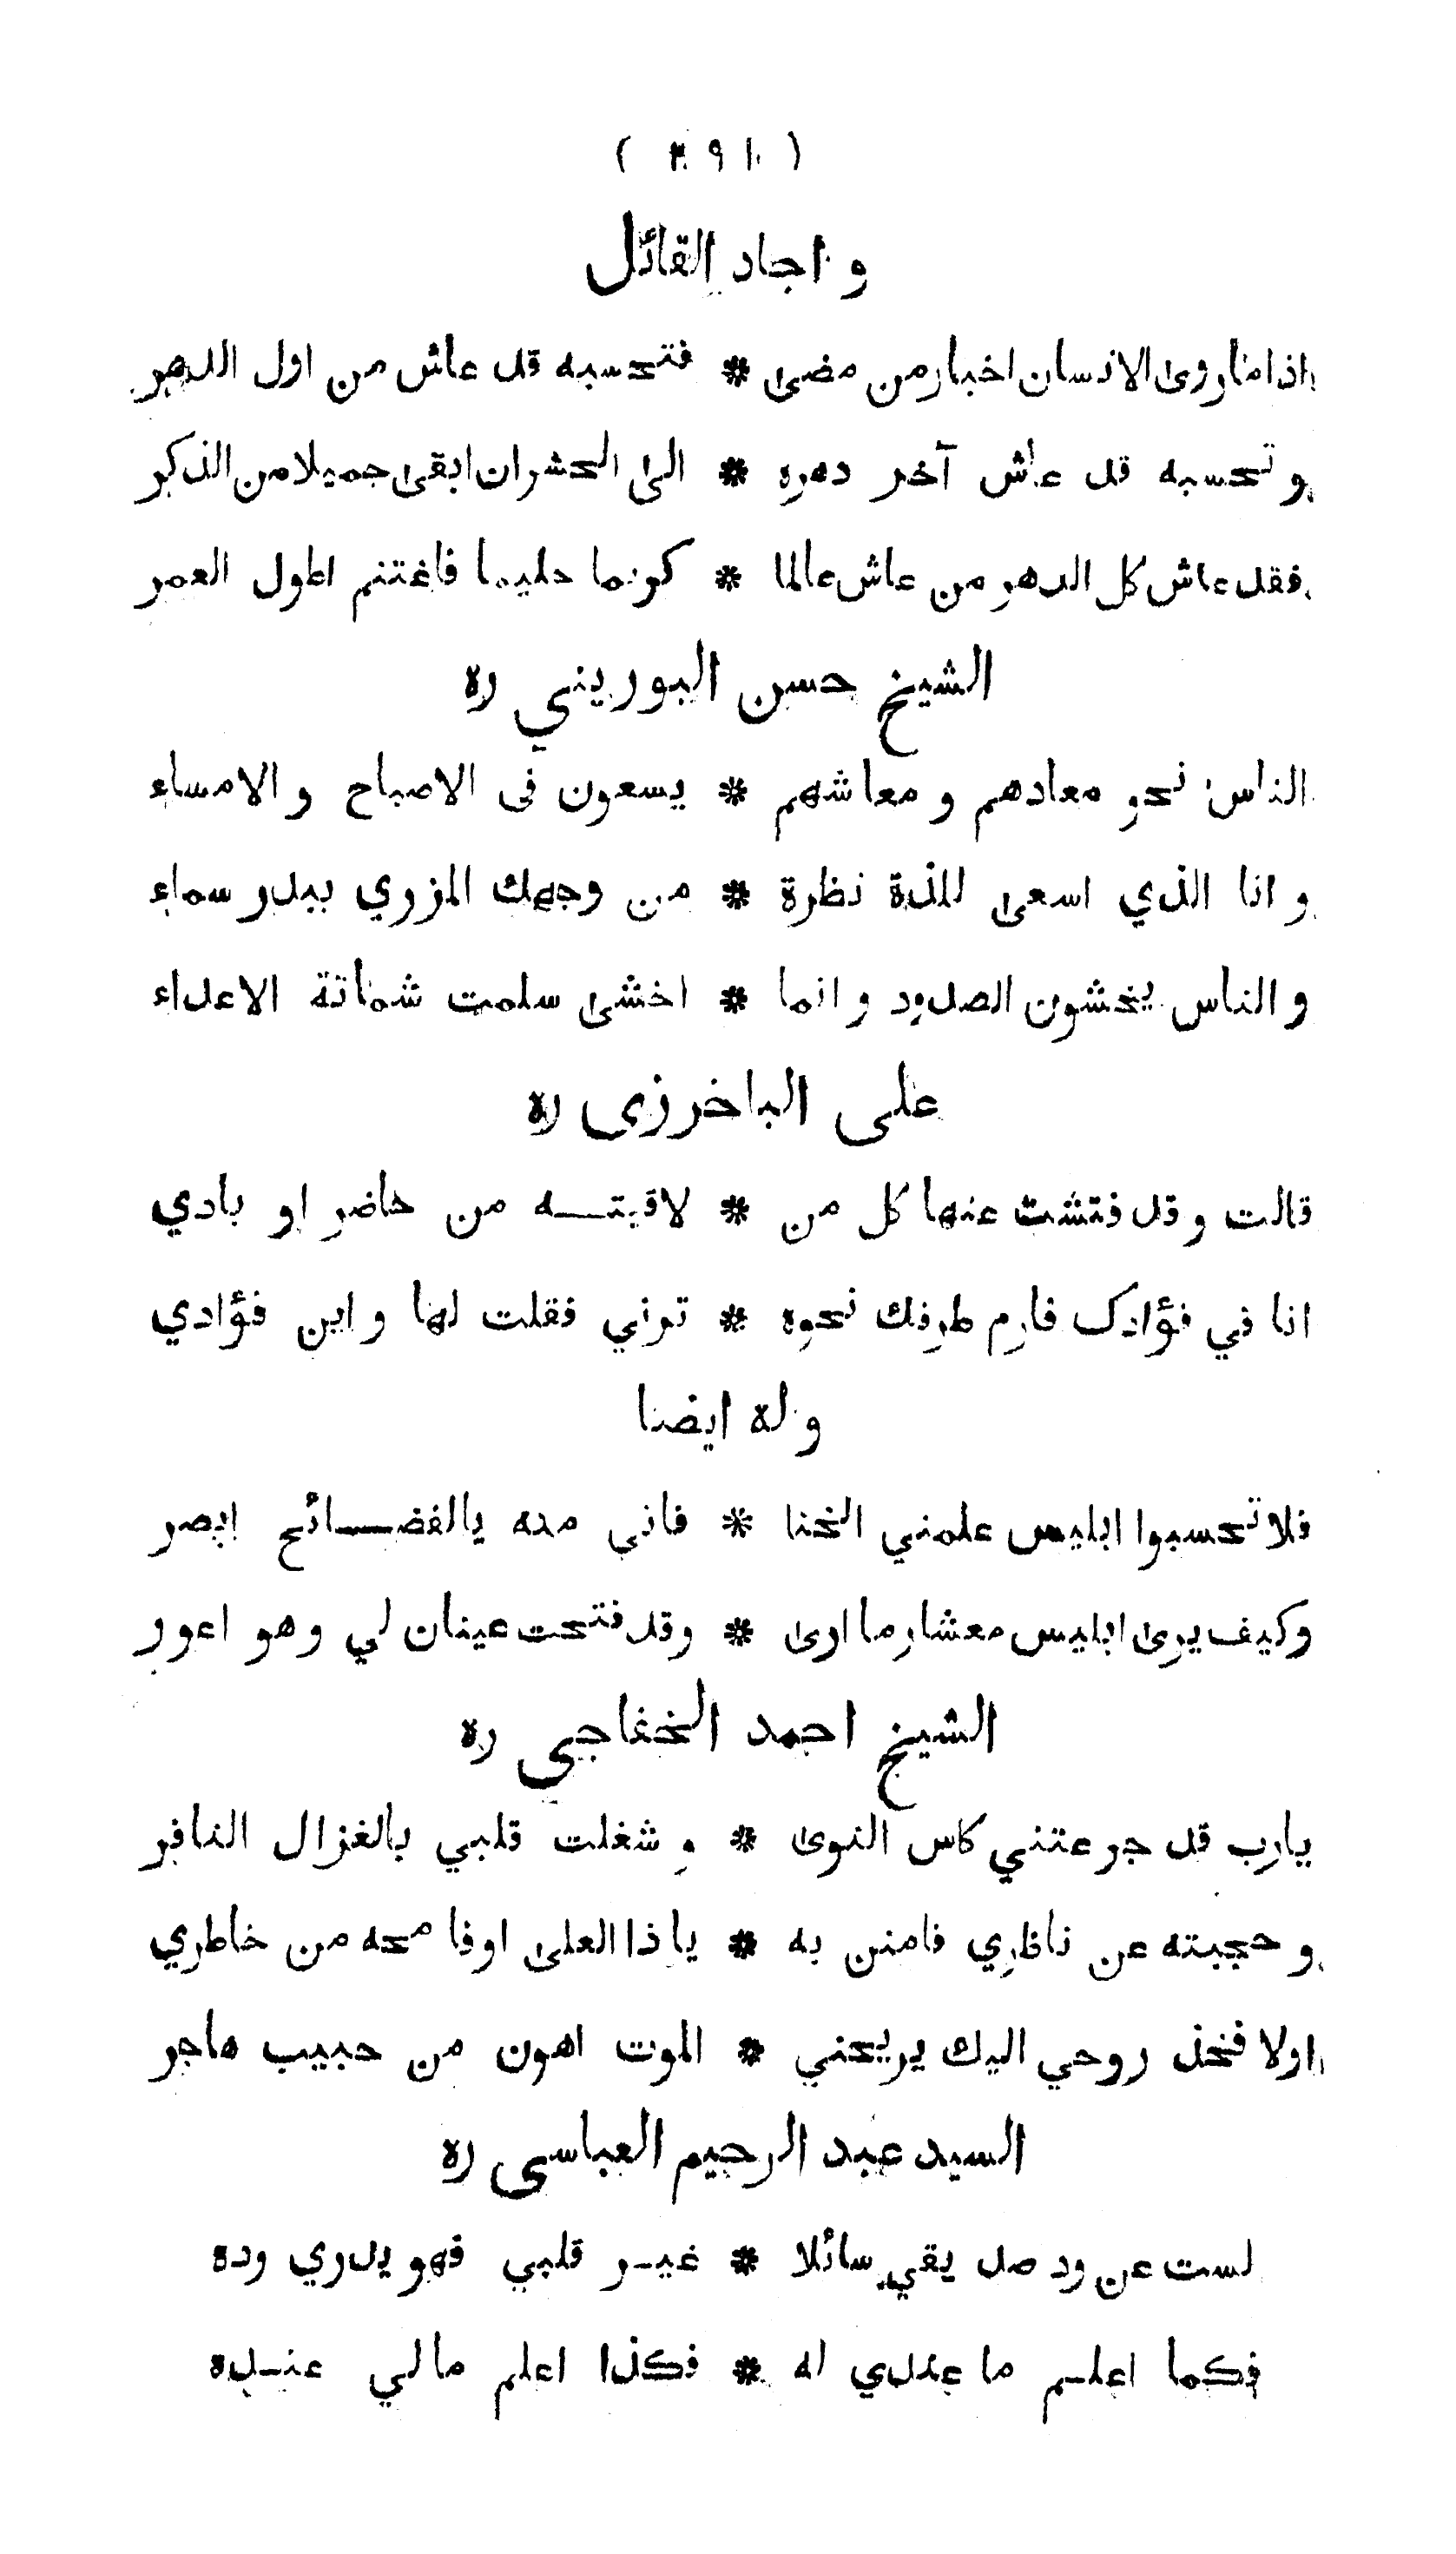 ( ٣٩١ )
و اجاد القائل
اذا ما روى الانسان اخبار من مضى * فتحسبه قد عاش من اول الدهر
و تحسبه قد عاش آخر دهره * الى الحشر ان ابقى جميلا من الذكر
فقد عاش كل الدهر من عاش عالما * كريما حليما فاغتنم اطول العمر
الشيخ حسن البوريني ره
الناس نحو معادهم و معاشهم * يسعون فى الاصباح و الامساء
و انا الذي اسعى للذة نظرة * من وجهك المزري ببدر سماء
و الناس يخشون الصدود و انما * اخشى سلمت شماتة الاعداء
على الباخرزى ره
قالت و قد فتشت عنها كل من * لاقيتـــه من حاضر او بادي
انا في فؤادك فارم طرفك نحوه * ترني فقلت لها و اين فؤادي
و له ايضا
فلا تحسبوا ابليس علمني الخنا * فاني منه بالفضـــائح ابصر
وكيف يرى ابليس معشار ما ارى * وقد فتحت عينان لي وهو اعور
الشيخ احمد الخفاجي ره
يارب قد جرعتني كاس النوى * و شغلت قلبي بالغزال النافر
و حجبته عن ناظري فامنن به * يا ذا العلى اوفا محه من خاطري
اولا فخذ روحي اليك يريحني * الموت اهون من حبيب هاجر
السيد عبد الرحيم العباسى ره
لست عن ود صديقي سائلا * غيـر قلبي فهو يدري وده
فكما اعلـم ما عندي له * فكذا اعلم ما لي عنـده